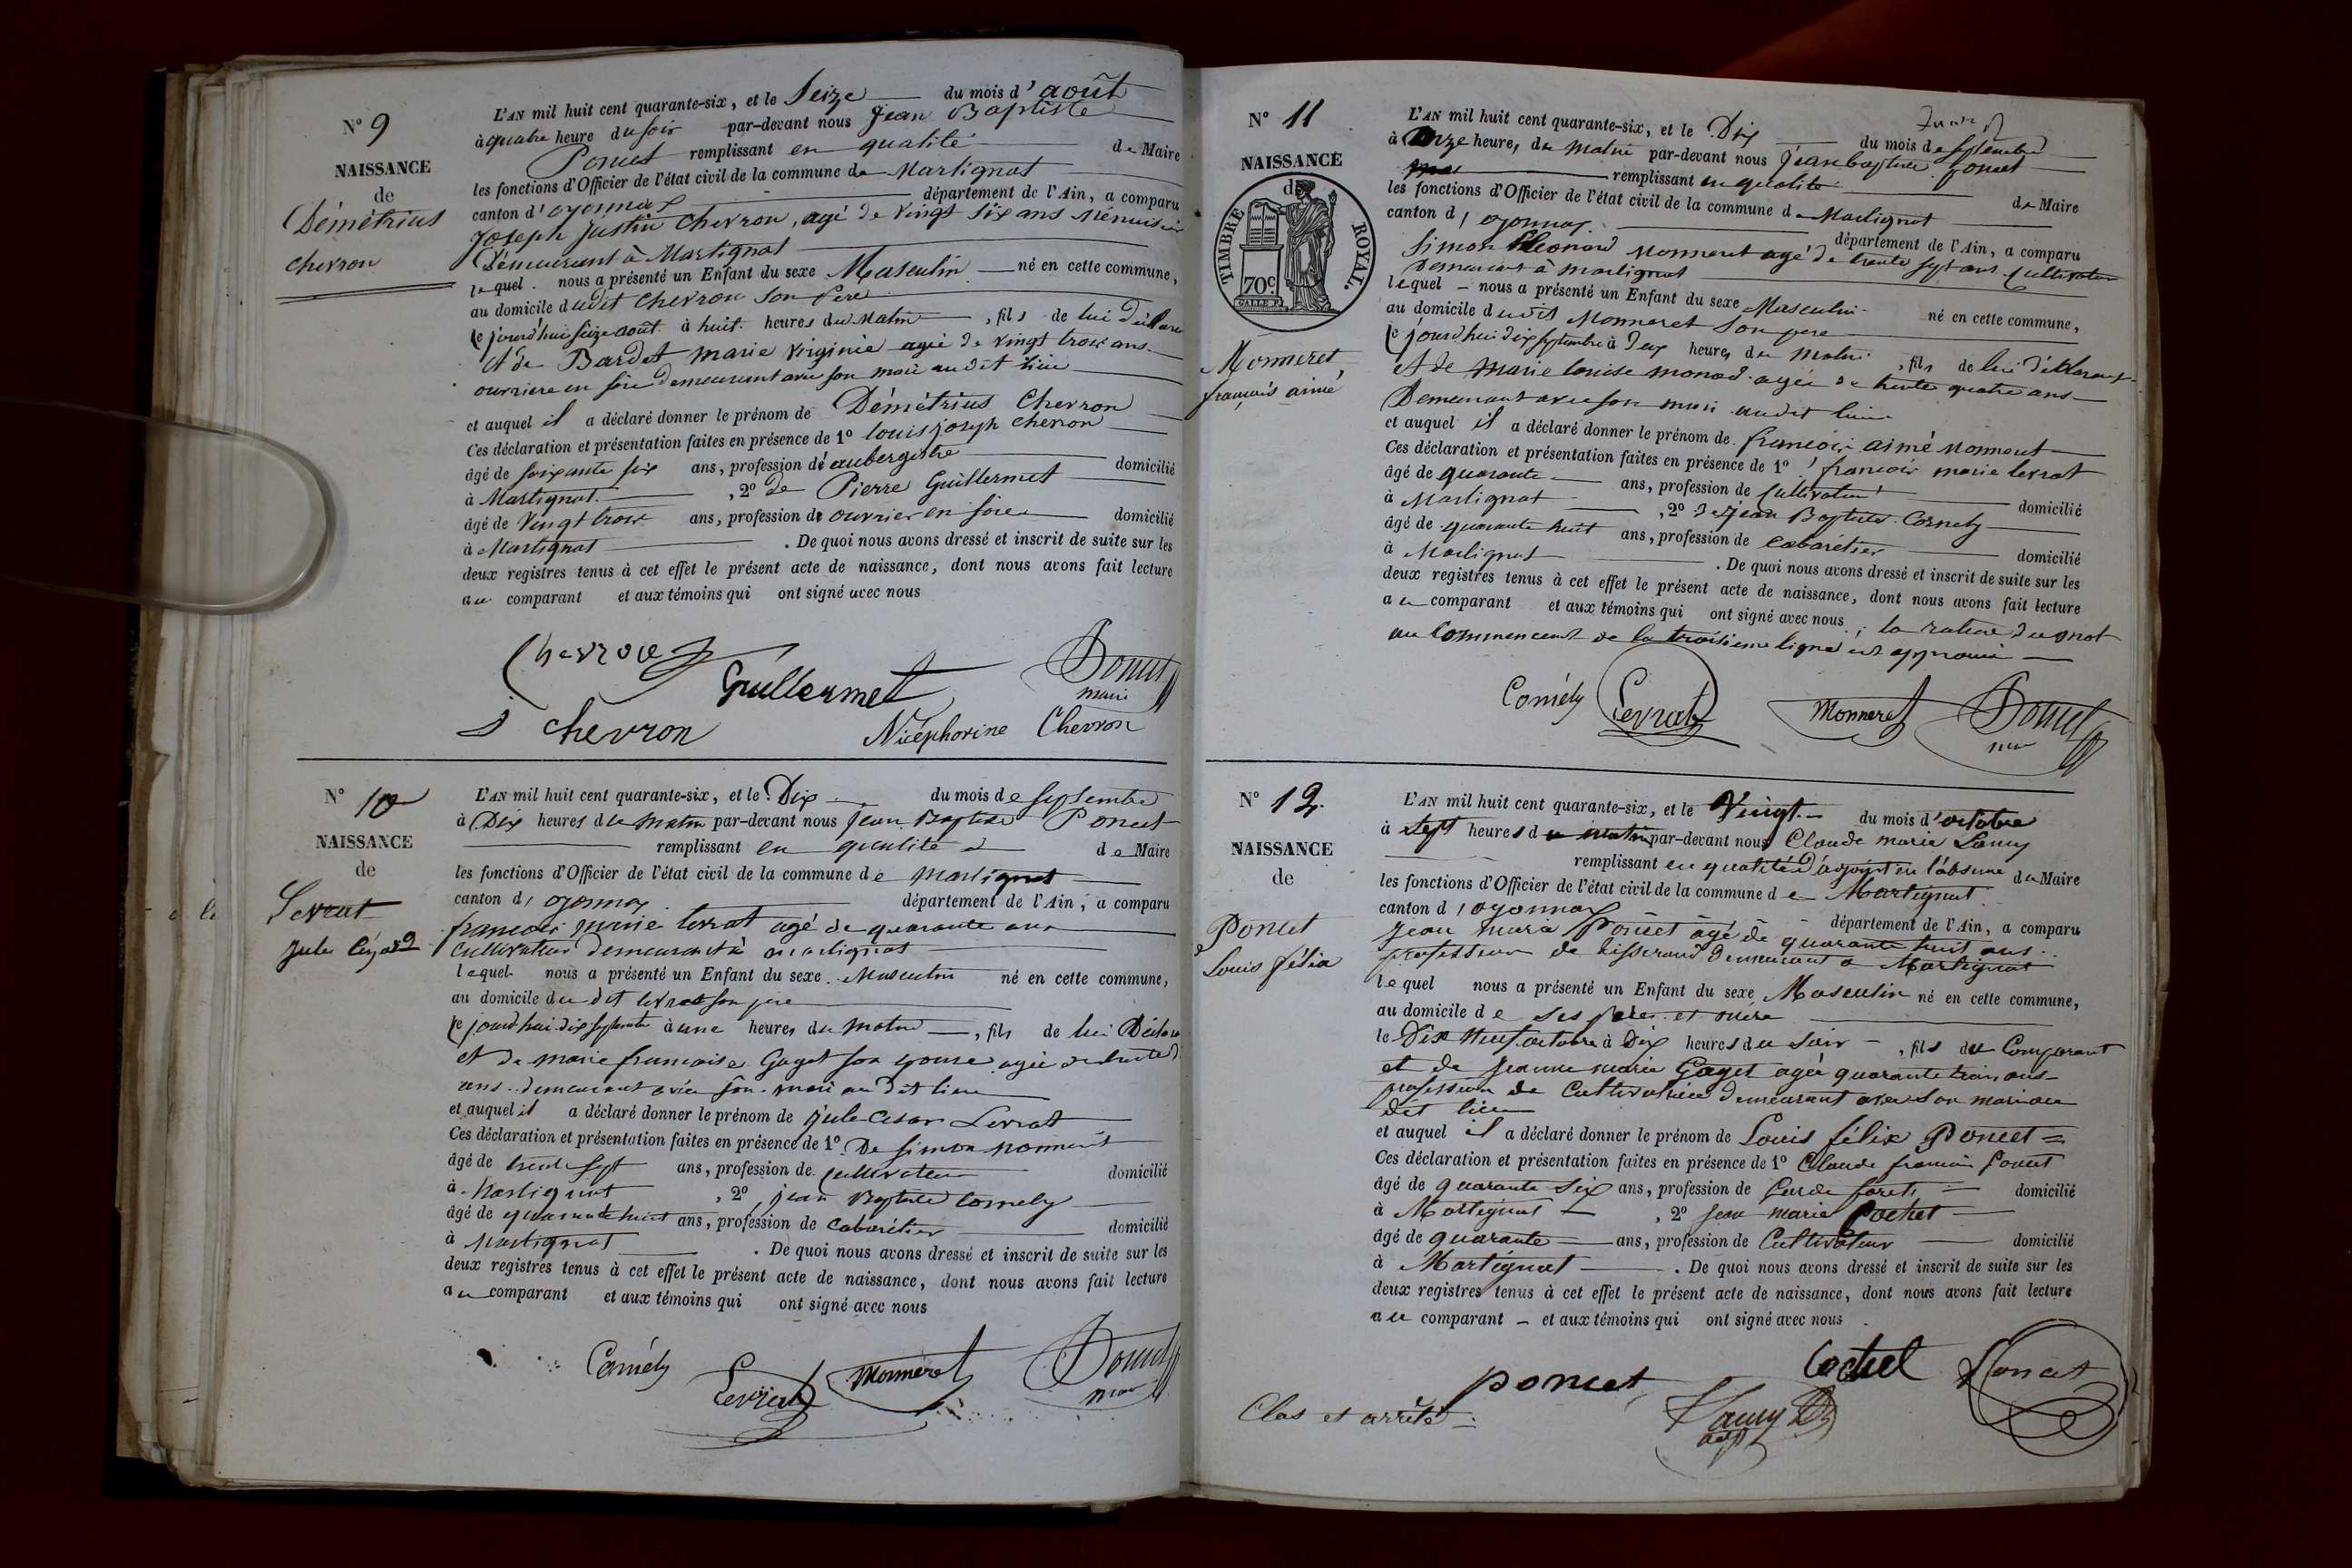 N° 9
NAISSANCE
de
Démétrius
chevron
L'AN mil huit cent quarante-six, et le Seize du mois d'août
à quatre heure du soir par-devant nous Jean Baptiste
Poncet remplissant en qualité de Maire
les fonctions d'Officier de l'état civil de la commune de Martignat
canton d'oyonnax département de l'Ain, a comparu
Joseph Justin Chevron, agé de vingt six ans Menuisier
Demeurant à Martignat
lequel nous a présenté un Enfant du sexe Masculin né en cette commune,
au domicile dudit Chevron son Pere
ce jourd'hui seize août à huit heures du Matin, fils de lui déclarant
et de Bardet marie virginie agée de vingt trois ans
ouvriere en soie demeurant avec son mari audit lieu
et auquel il a déclaré donner le prénom de Démétrius Chevron
Ces déclaration et présentation faites en présence de 1° louis joseph chevron
âgé de soixante six ans, profession d'aubergiste domicilié
à Martignat, 2° de Pierre Guillermet
âgé de vingt trois ans, profession de ouvrier en soie domicilié
à Martignat. De quoi nous avons dressé et inscrit de suite sur les
deux registres tenus à cet effet le présent acte de naissance, dont nous avons fait lecture
au comparant et aux témoins qui ont signé avec nous
Chevron Guillermet Poncet
maire
J chevron Nicéphorine Chevron
N° 10
NAISSANCE
de
Levrat
Jules César
L'AN mil huit cent quarante-six, et le Dix du mois de septembre
à Dix heures du matin par-devant nous Jean Baptiste Poncet
remplissant en qualité de Maire
les fonctions d'Officier de l'état civil de la commune de Martignat
canton d'oyonnax département de l'Ain, a comparu
francois marie levrat agé de quarante ans
cultivateur demeurant à martignat
lequel nous a présenté un Enfant du sexe Masculin né en cette commune,
au domicile du dit levrat son pere
ce jourd'hui dix septembre à une heures du matin, fils de lui Déclarant
et de marie francoise Gaget son epouse agée de trente
ans demeurant avec son mari au dit lieu
et auquel il a déclaré donner le prénom de jule César Levrat
Ces déclaration et présentation faites en présence de 1° De simon monneret
âgé de trente sept ans, profession de cultivateur domicilié
à Martignat, 2° jean Baptiste Cornely
âgé de quarante huit ans, profession de cabarétier domicilié
à Martignat. De quoi nous avons dressé et inscrit de suite sur les
deux registres tenus à cet effet le présent acte de naissance, dont nous avons fait lecture
au comparant et aux témoins qui ont signé avec nous
Cornély Levrat Monneret Poncet
N° 11
NAISSANCE
de
TIMBRE ROYAL.
70c.
Monneret
françois aimé
L'AN mil huit cent quarante-six, et le Dix du mois de septembre
à onze heure, du matin par-devant nous Jean baptiste poncet
remplissant en qualité de Maire
les fonctions d'Officier de l'état civil de la commune de Martignat
canton d'oyonnax département de l'Ain, a comparu
Simon Léonard Monneret agé de trente sept ans cultivateur
Demeurant à martignat
lequel nous a présenté un Enfant du sexe Masculin né en cette commune,
au domicile dudit Monneret son pere
ce jourd'hui dix septembre à deux heures du matin, fils de lui déclarant
et de marie louise monod agée de trente quatre ans
Demeurant avec son mari audit lieu
et auquel il a déclaré donner le prénom de francois aimé Monneret
Ces déclaration et présentation faites en présence de 1° francois marie levrat
âgé de quarante ans, profession de cultivateur domicilié
à Martignat, 2° de jean Baptiste Cornely
âgé de quarante huit ans, profession de cabarétier domicilié
à Martignat. De quoi nous avons dressé et inscrit de suite sur les
deux registres tenus à cet effet le présent acte de naissance, dont nous avons fait lecture
au comparant et aux témoins qui ont signé avec nous ; la rature du mot
au commencement de la troisieme ligne est approuvé
Cornély Levrat Monneret Poncet
N° 12
NAISSANCE
de
Poncet
Louis félix
L'AN mil huit cent quarante-six, et le Vingt du mois d'octobre
à sept heures du matin par-devant nous Claude marie Lamy
remplissant en qualité d'adjoint en l'absence du Maire
les fonctions d'Officier de l'état civil de la commune de Martignat
canton d'oyonnax département de l'Ain, a comparu
Jean marie Poncet âgé de quarante huit ans
profession de tisserand demeurant a Martignat
lequel nous a présenté un Enfant du sexe Masculin né en cette commune,
au domicile de ses père et mère
le Dix Neuf octobre à Dix heures du soir, fils du Comparant
et de Jeanne marie Gaget agée quarante trois ans
profession de Cultivatrice demeurant avec son mari au
dit lieu
et auquel il a déclaré donner le prénom de Louis félix Poncet
Ces déclaration et présentation faites en présence de 1° Claude francois Poncet
âgé de quarante six ans, profession de Garde foret domicilié
à Martignat, 2° Jean marie Cochet
âgé de quarante ans, profession de Cultivateur domicilié
à Martignat. De quoi nous avons dressé et inscrit de suite sur les
deux registres tenus à cet effet le présent acte de naissance, dont nous avons fait lecture
au comparant et aux témoins qui ont signé avec nous
poncet Cochet Poncet
Clos et arrêté Lamy
adj